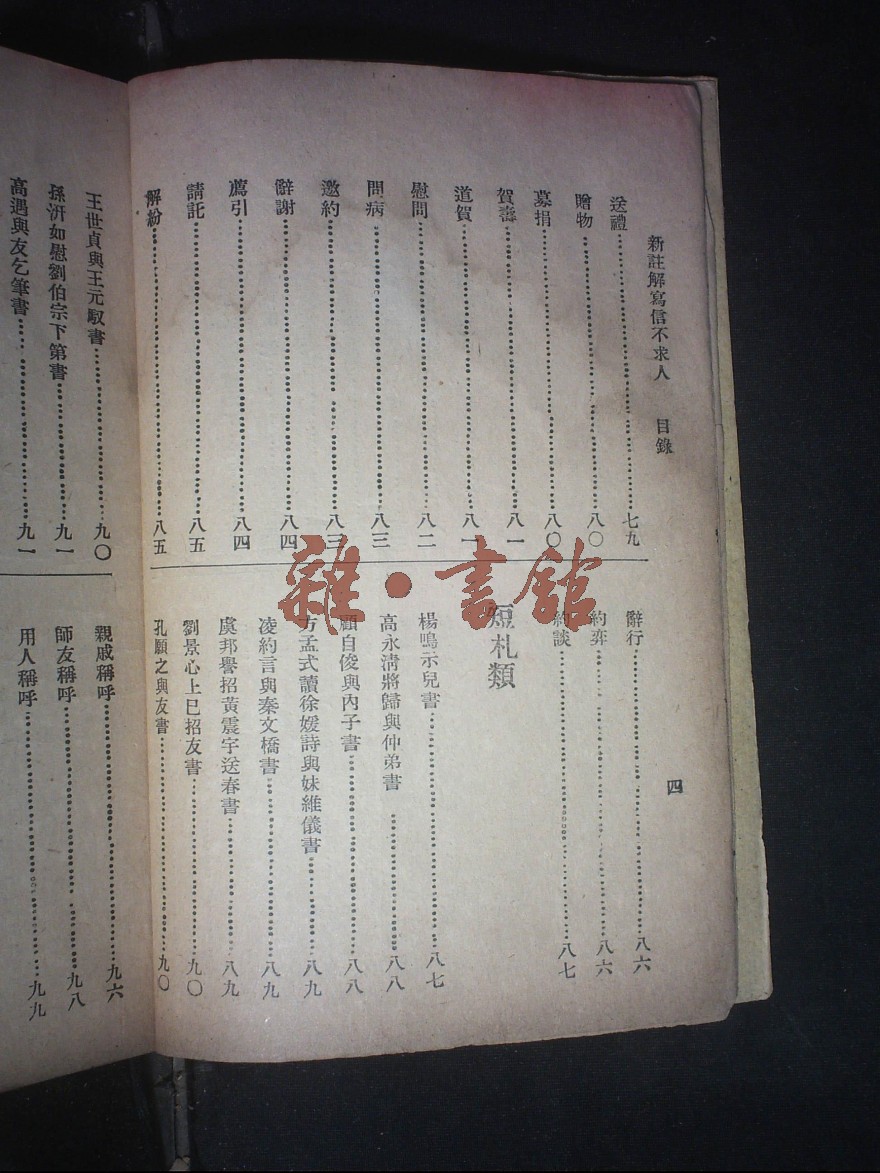 新註解寫信不求人 目錄 四
送禮 七九
贈物 八〇
募捐 八〇
賀壽 八一
道賀 八一
慰問 八二
問病 八三
邀約 八三
辭謝 八四
薦引 八四
請託 八五
解紛 八五
辭行 八六
約弈 八六
約談 八七
短札類
楊鳴示兒書 八七
高永清將歸與仲弟書 八八
顧自俊與內子書 八八
方孟式讀徐媛詩與妹維儀書 八九
凌約言與秦文橋書 八九
虞邦譽招黃震宇送春書 八九
劉景心上巳招友書 九〇
孔願之與友書 九〇
王世貞與王元馭書 九〇
孫汧如慰劉伯宗下第書 九一
高遇與友乞筆書 九一
親戚稱呼 九六
師友稱呼 九八
用人稱呼 九九
雜·書館